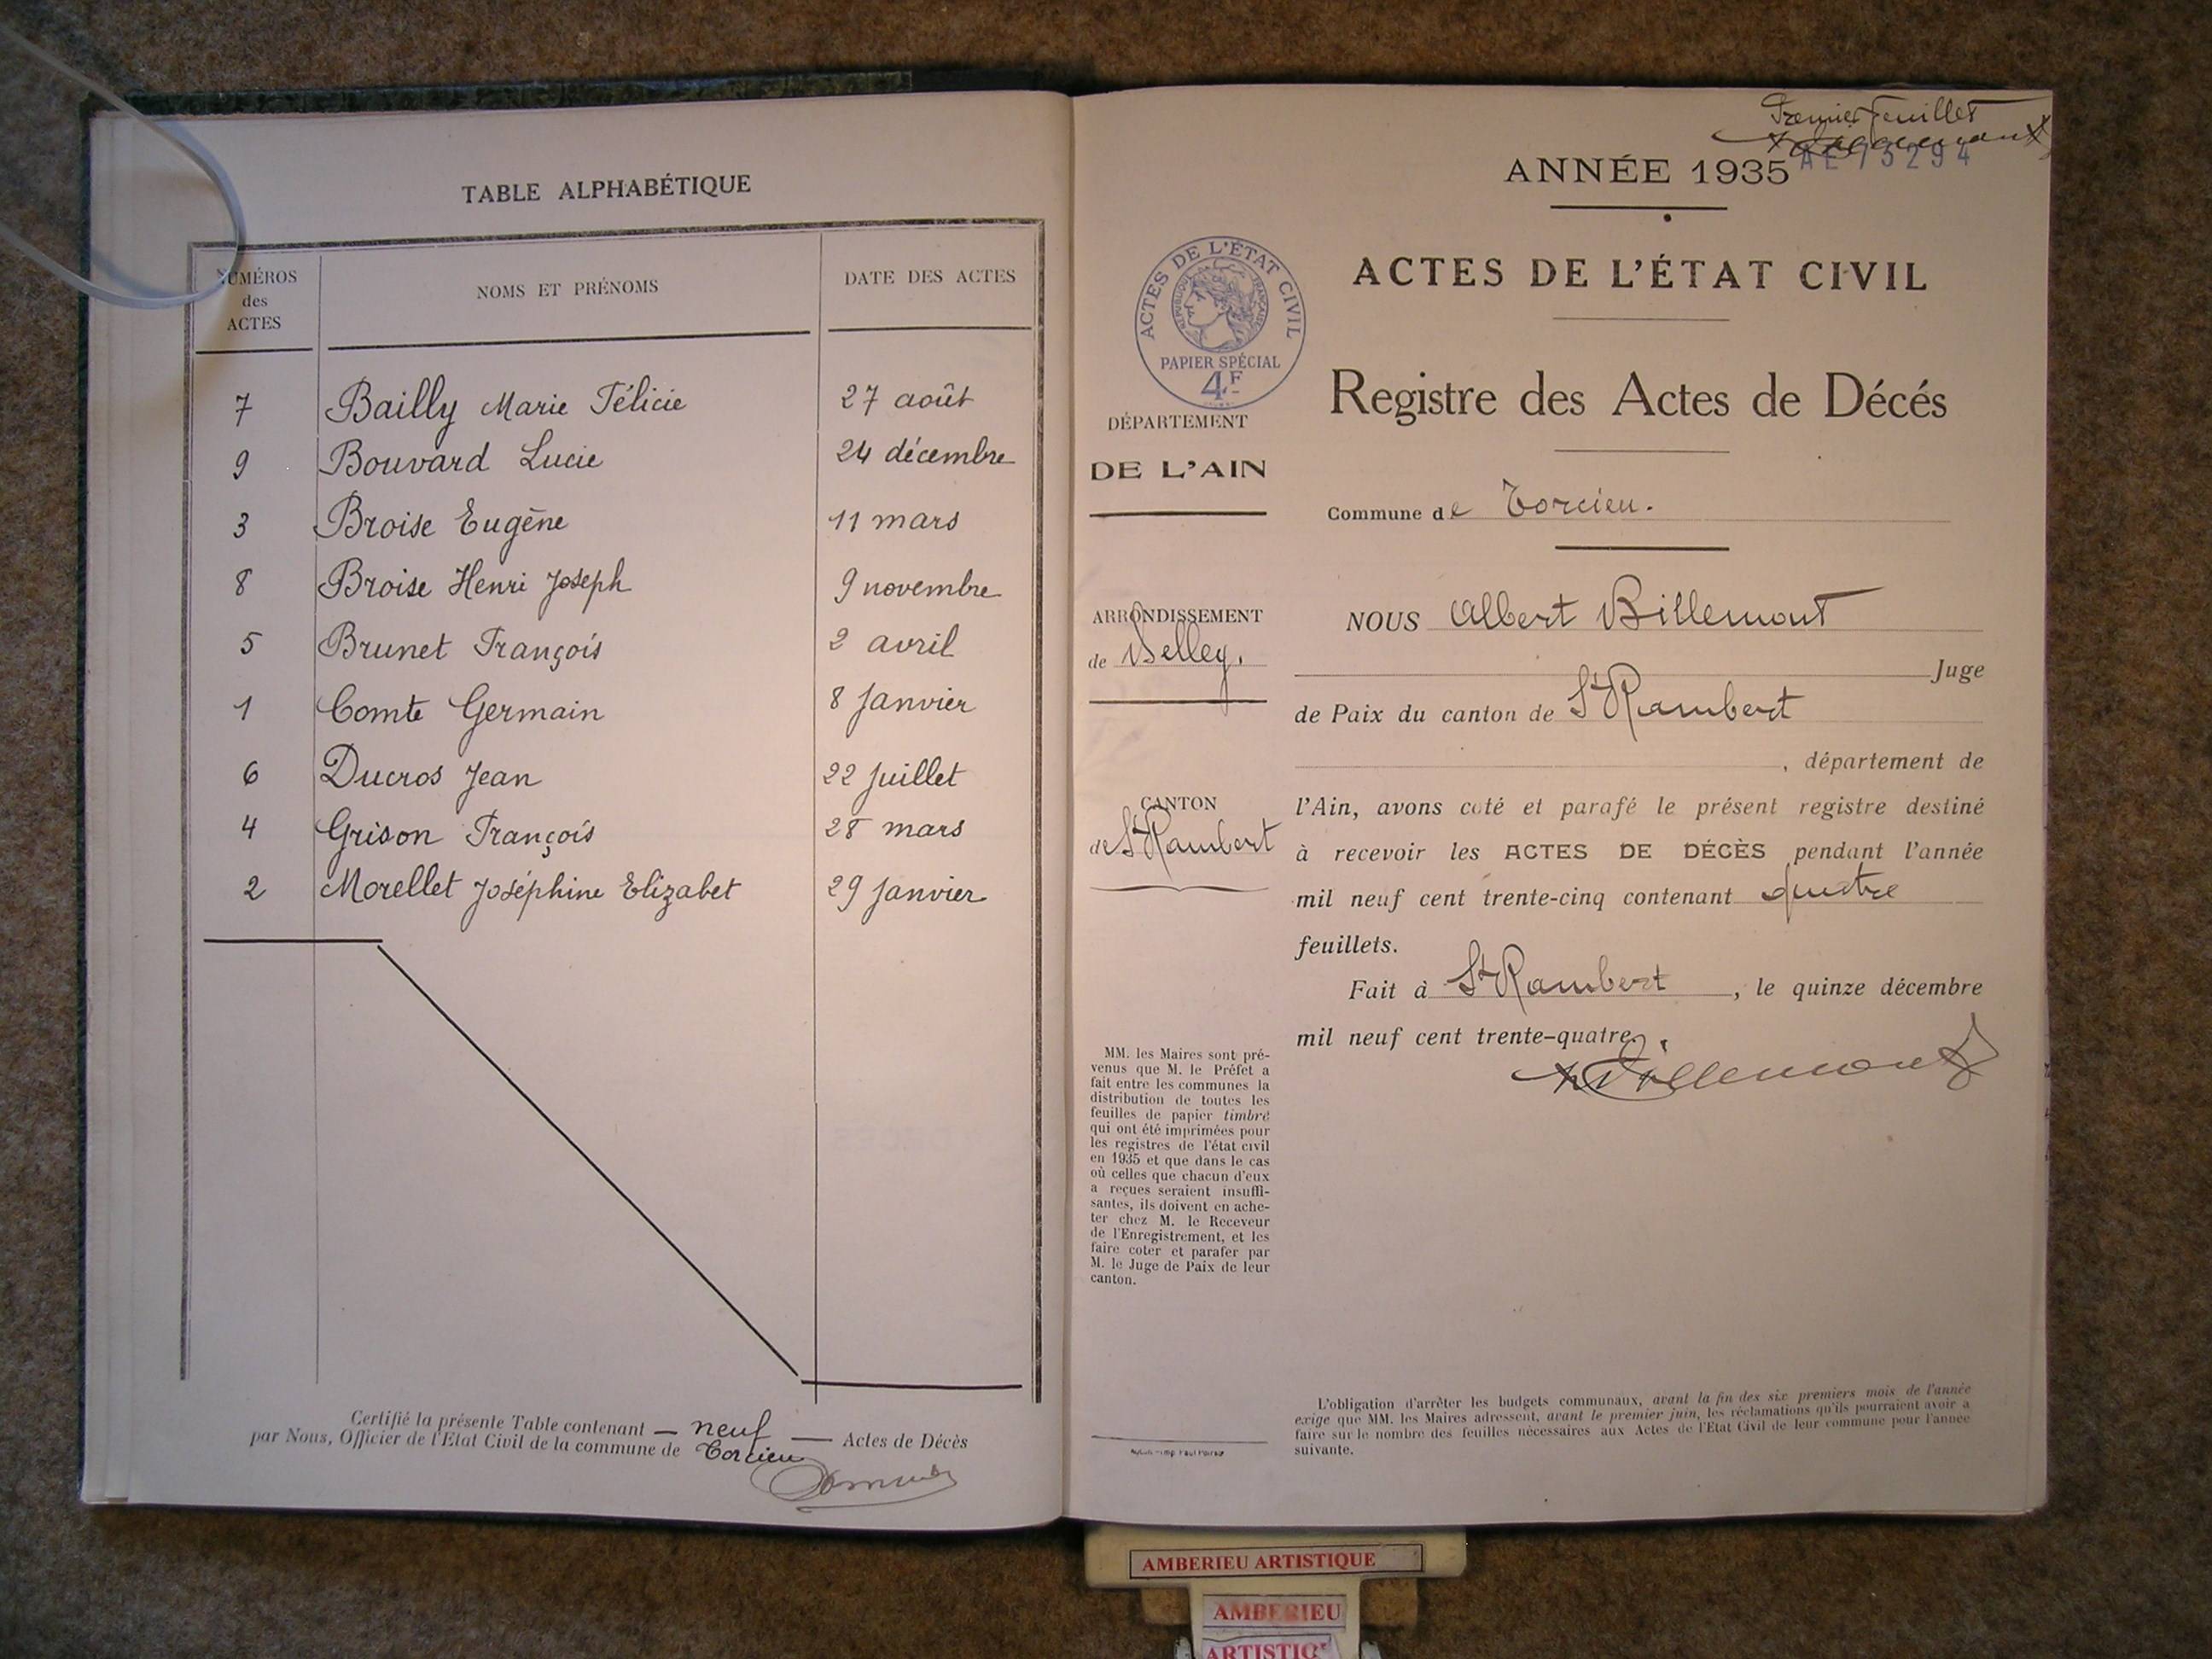 TABLE ALPHABÉTIQUE
NUMÉROS
des
ACTES
NOMS ET PRÉNOMS
DATE DES ACTES
7 Bailly Marie Félicie 27 août
9 Bouvard Lucie 24 décembre
3 Broise Eugène 11 mars
8 Broise Henri Joseph 9 novembre
5 Brunet François 2 avril
1 Comte Germain 8 Janvier
6 Ducros Jean 22 Juillet
4 Grison François 28 mars
2 Morellet Joséphine Elizabet 29 Janvier
Certifié la présente Table contenant — neuf — Actes de Décès
par Nous, Officier de l'Etat Civil de la commune de Torcieu
Premier feuillet
ANNÉE 1935
AE 75294
ACTES DE L'ÉTAT CIVIL
RÉPUBLIQUE FRANÇAISE
PAPIER SPÉCIAL
4F
DÉPARTEMENT
DE L'AIN
ARRONDISSEMENT
de Belley.
CANTON
de St Rambert
MM. les Maires sont pré-
venus que M. le Préfet a
fait entre les communes la
distribution de toutes les
feuilles de papier timbré
qui ont été imprimées pour
les registres de l'état civil
en 1935 et que dans le cas
où celles que chacun d'eux
a reçues seraient insuffi-
santes, ils doivent en ache-
ter chez M. le Receveur
de l'Enregistrement, et les
faire coter et parafer par
M. le Juge de Paix de leur
canton.
ACTES DE L'ÉTAT CIVIL
Registre des Actes de Décés
Commune de Torcieu.
NOUS Albert Billemont
Juge
de Paix du canton de St Rambert
, département de
l'Ain, avons coté et parafé le présent registre destiné
à recevoir les ACTES DE DÉCÈS pendant l'année
mil neuf cent trente-cinq contenant quatre
feuillets.
Fait à St Rambert, le quinze décembre
mil neuf cent trente-quatre.
Billemont
L'obligation d'arrêter les budgets communaux, avant la fin des six premiers mois de l'année
exige que MM. les Maires adressent, avant le premier juin, les réclamations qu'ils pourraient avoir a
faire sur le nombre des feuilles nécessaires aux Actes de l'Etat Civil de leur commune pour l'année
suivante.
AMBERIEU ARTISTIQUE
AMBERIEU
ARTISTIQ